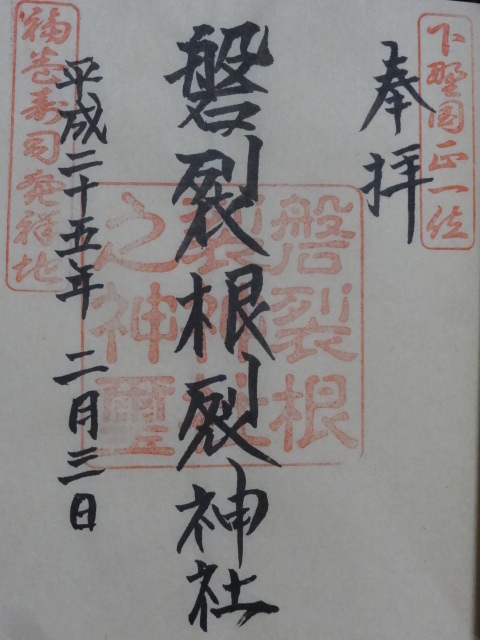 下野国正一位
奉拝
磐裂根裂神社
磐裂根
裂神社
之神璽
平成二十五年 二月三日
福巻寿司発祥地